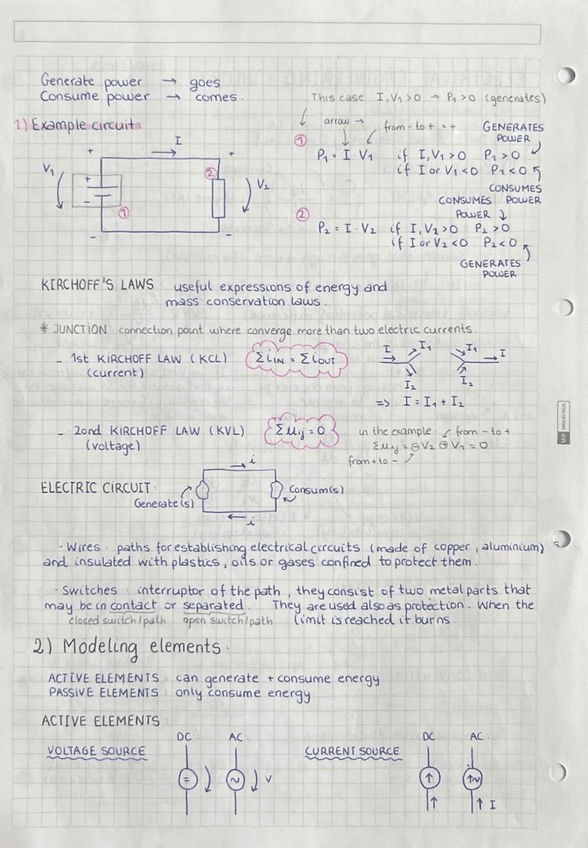 Generate power → goes
Consume power → comes
This case I, V₁ > 0 → P₁ > 0 (generates)
1) Example circuit
arrow →
from - to + = +
GENERATES POWER
① P₁ = I · V₁ if I, V₁ > 0 P₁ > 0
if I or V₁ < 0 P₁ < 0
CONSUMES POWER
CONSUMES POWER
② P₂ = I · V₂ if I, V₂ > 0 P₂ > 0
if I or V₂ < 0 P₂ < 0
GENERATES POWER
I
+ +
V₁
+
-
①
②
V₂
- -
KIRCHOFF'S LAWS useful expressions of energy and
mass conservation laws.
* JUNCTION connection point where converge more than two electric currents.
- 1st KIRCHOFF LAW (KCL)
(current)
Σ i_IN = Σ i_OUT
I I₁ I₂
I₁ I₂ I
=> I = I₁ + I₂
- 2ond KIRCHOFF LAW (KVL)
(voltage)
Σ u_ij = 0
in the example from - to +
Σ u_ij = ⊖ V₂ ⊕ V₁ = 0
from + to -
ELECTRIC CIRCUIT:
i
Generate(s)
Consum(s)
i
- Wires paths for establishing electrical circuits (made of copper, aluminium)
and insulated with plastics, oils or gases confined to protect them.
- Switches interruptor of the path, they consist of two metal parts that
may be in contact or separated. They are used also as protection. When the
closed switch/path open switch/path limit is reached it burns.
2) Modeling elements
ACTIVE ELEMENTS can generate + consume energy
PASSIVE ELEMENTS only consume energy
ACTIVE ELEMENTS:
VOLTAGE SOURCE
DC AC
= ~ V
CURRENT SOURCE
DC AC
I